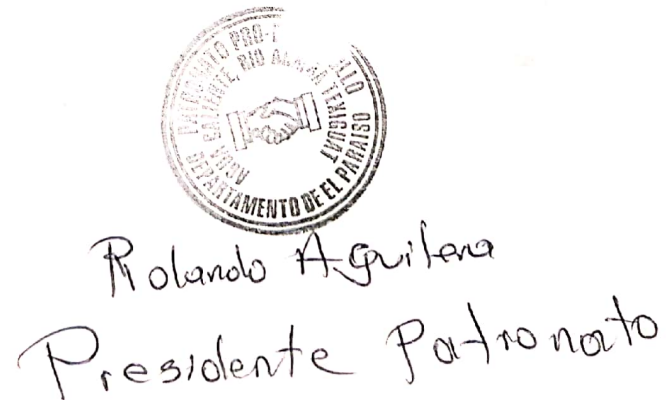 PATRONATO PRO-
AGUA CALIENTE, RIO TEXIGUAT
DEPARTAMENTO DE EL PARAISO
Rolando Aguilera
Presidente Patronato